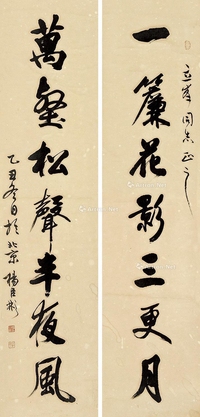 一簾花影三更月
立峯同志正之
萬壑松聲半夜風
乙丑冬日於北京 楊臣彬